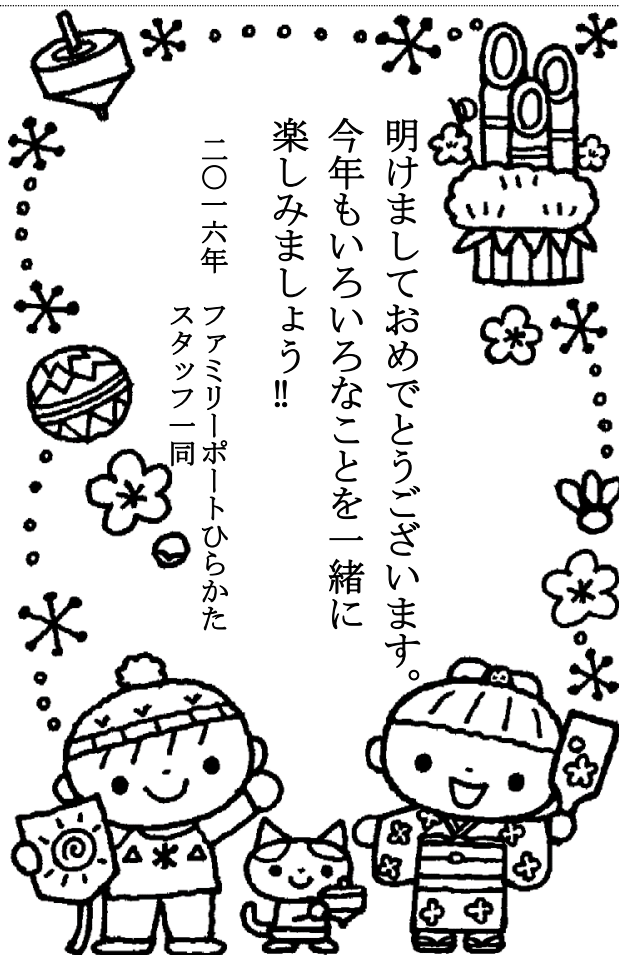 明けましておめでとうございます。
今年もいろいろなことを一緒に
楽しみましょう!!
二〇一六年　ファミリーポートひらかた
スタッフ一同